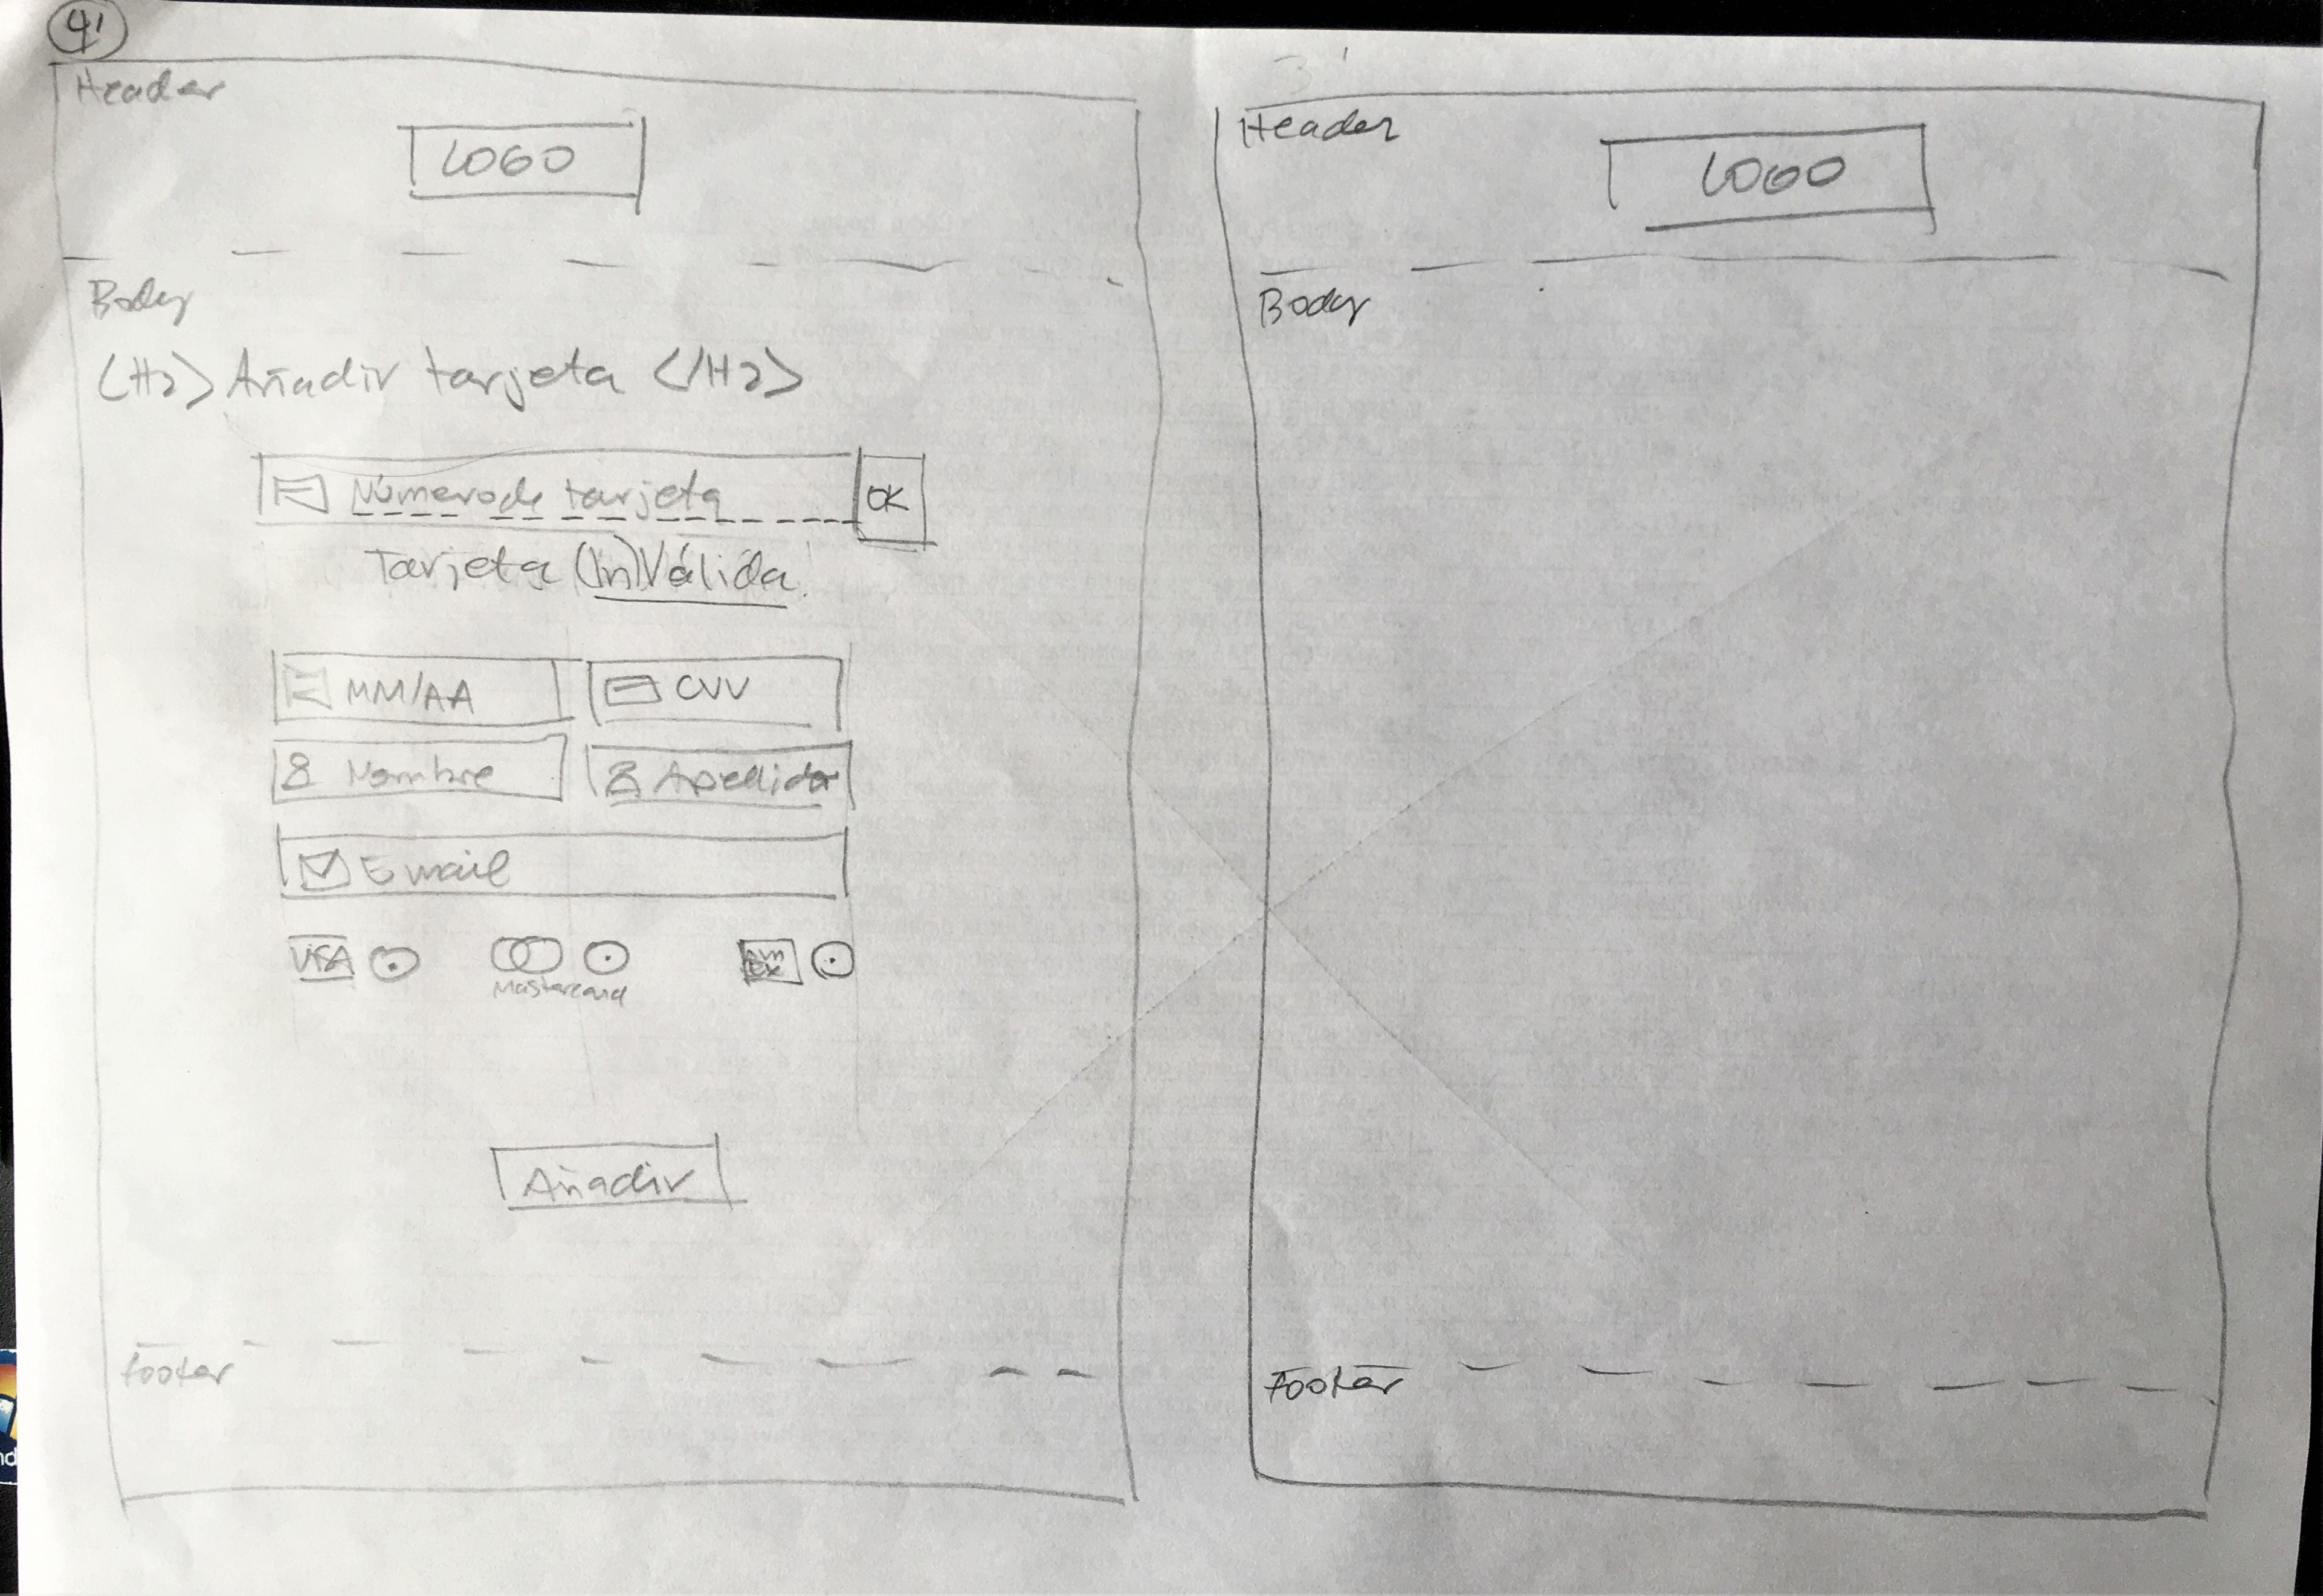 4'
Header
LOGO
Body
<H2> Añadir tarjeta </H2>
Número de tarjeta
OK
Tarjeta (In)Válida!
MM/AA
CVV
Nombre
Apellido
Email
VISA
Mastercard
am
ex
Añadir
footer
3'
Header
LOGO
Body
Footer